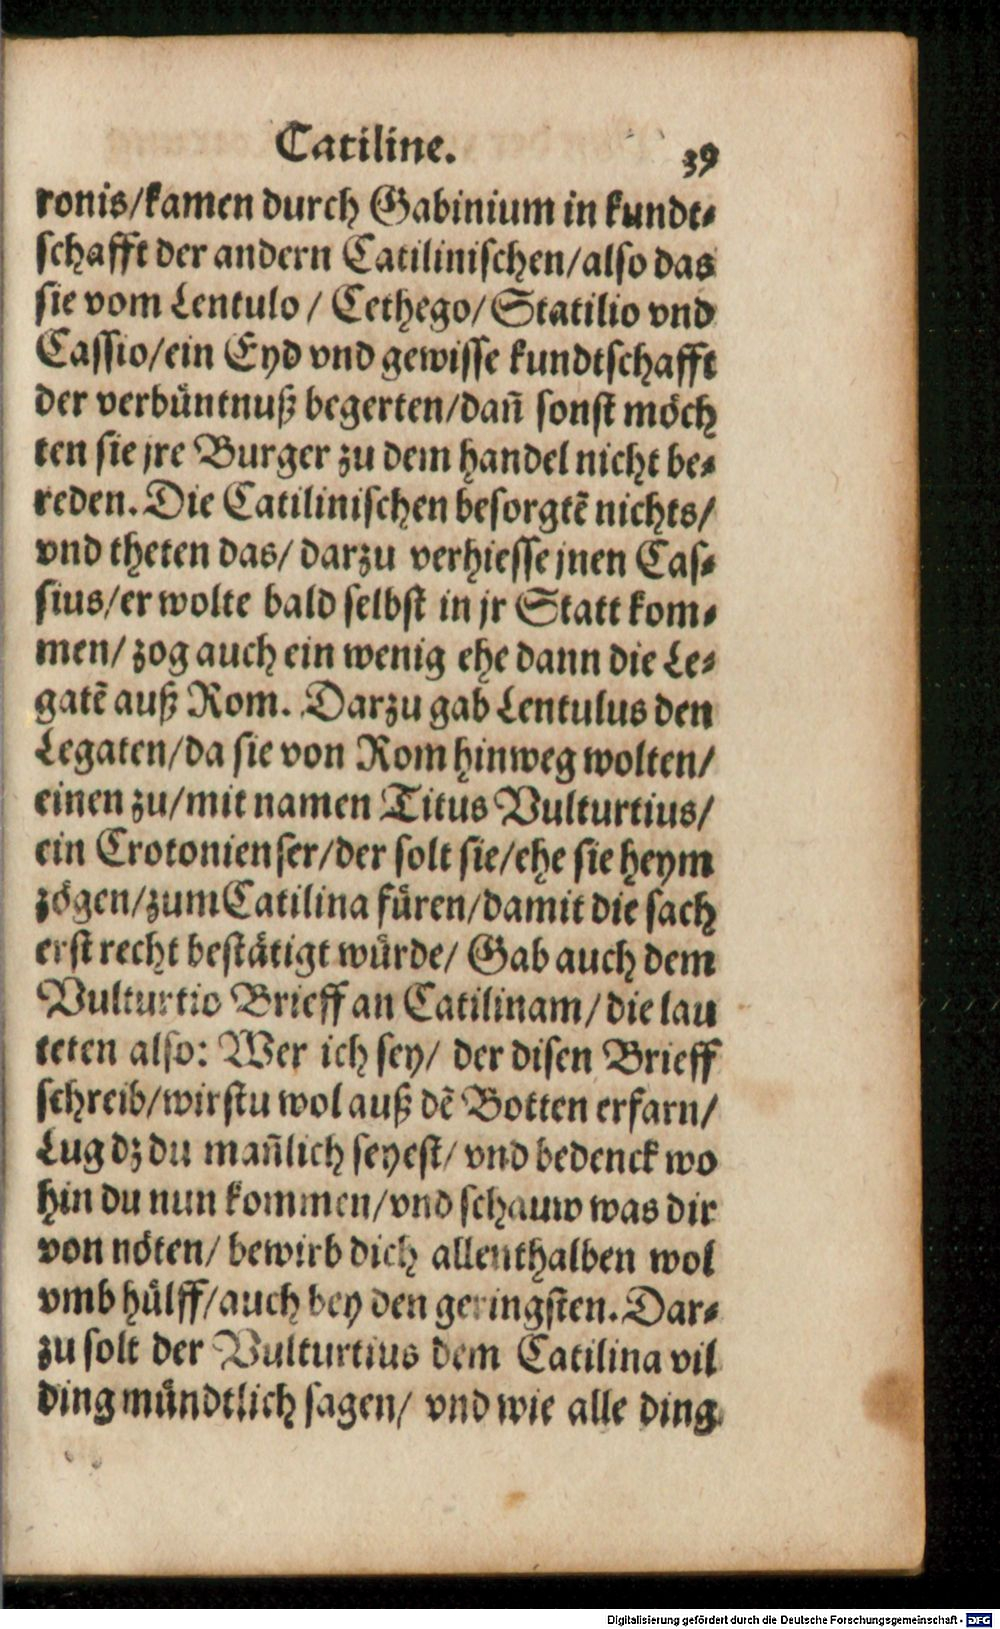 Catiline. 39
ronis/kamen durch Gabinium in kundt⸗
schafft der andern Catilinischen/also das
sie vom Lentulo / Cethego/ Statilio vnd
Cassio/ein Eyd vnd gewisse kundtschafft
der verbüntnuß begerten/dañ sonst möch
ten sie jre Burger zu dem handel nicht be⸗
reden. Die Catilinischen besorgtẽ nichts/
vnd theten das/ darzu verhiesse jnen Cas⸗
sius/er wolte bald selbst in jr Statt kom⸗
men/ zog auch ein wenig ehe dann die Le⸗
gatẽ auß Rom. Darzu gab Lentulus den
Legaten/da sie von Rom hinweg wolten/
einen zu/mit namen Titus Vulturtius/
ein Crotonienser/der solt sie/ehe sie heym
zögen/zum Catilina füren/damit die sach
erst recht bestätigt würde/ Gab auch dem
Vulturtio Brieff an Catilinam/ die lau
teten also: Wer ich sey/ der disen Brieff
schreib/wirstu wol auß dẽ Botten erfarn/
Lug dz du mañlich seyest/ vnd bedenck wo
hin du nun kommen/vnd schauw was dir
von nöten/ bewirb dich allenthalben wol
vmb hülff/auch bey den geringsten. Dar⸗
zu solt der Vulturtius dem Catilina vil
ding mündtlich sagen/ vnd wie alle ding
Digitalisierung gefördert durch die Deutsche Forschungsgemeinschaft - DFG